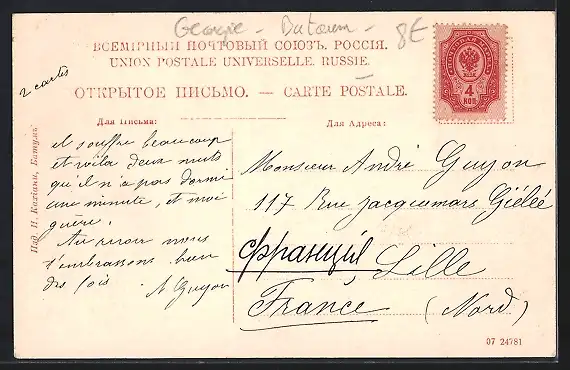 Georgie - Batoum - 8€
ВСЕМІРНЫЙ ПОЧТОВЫЙ СОЮЗЪ. РОССІЯ.
UNION POSTALE UNIVERSELLE. RUSSIE.
2 cartes
ОТКРЫТОЕ ПИСЬМО. — CARTE POSTALE.
4
КОП.
Для Письма:
Для Адреса:
Изд. И. Кахіани, Батумъ
il souffre beaucoup
et voilà deux nuits
qu'il n'a pas dormi
une minute, et moi
guère.
Au revoir nous
t'embrassons bien
des fois
A Guyon
Monsieur André Guyon
117 Rue Jacquemars Giélée
Франція Lille
France (Nord)
07 24781